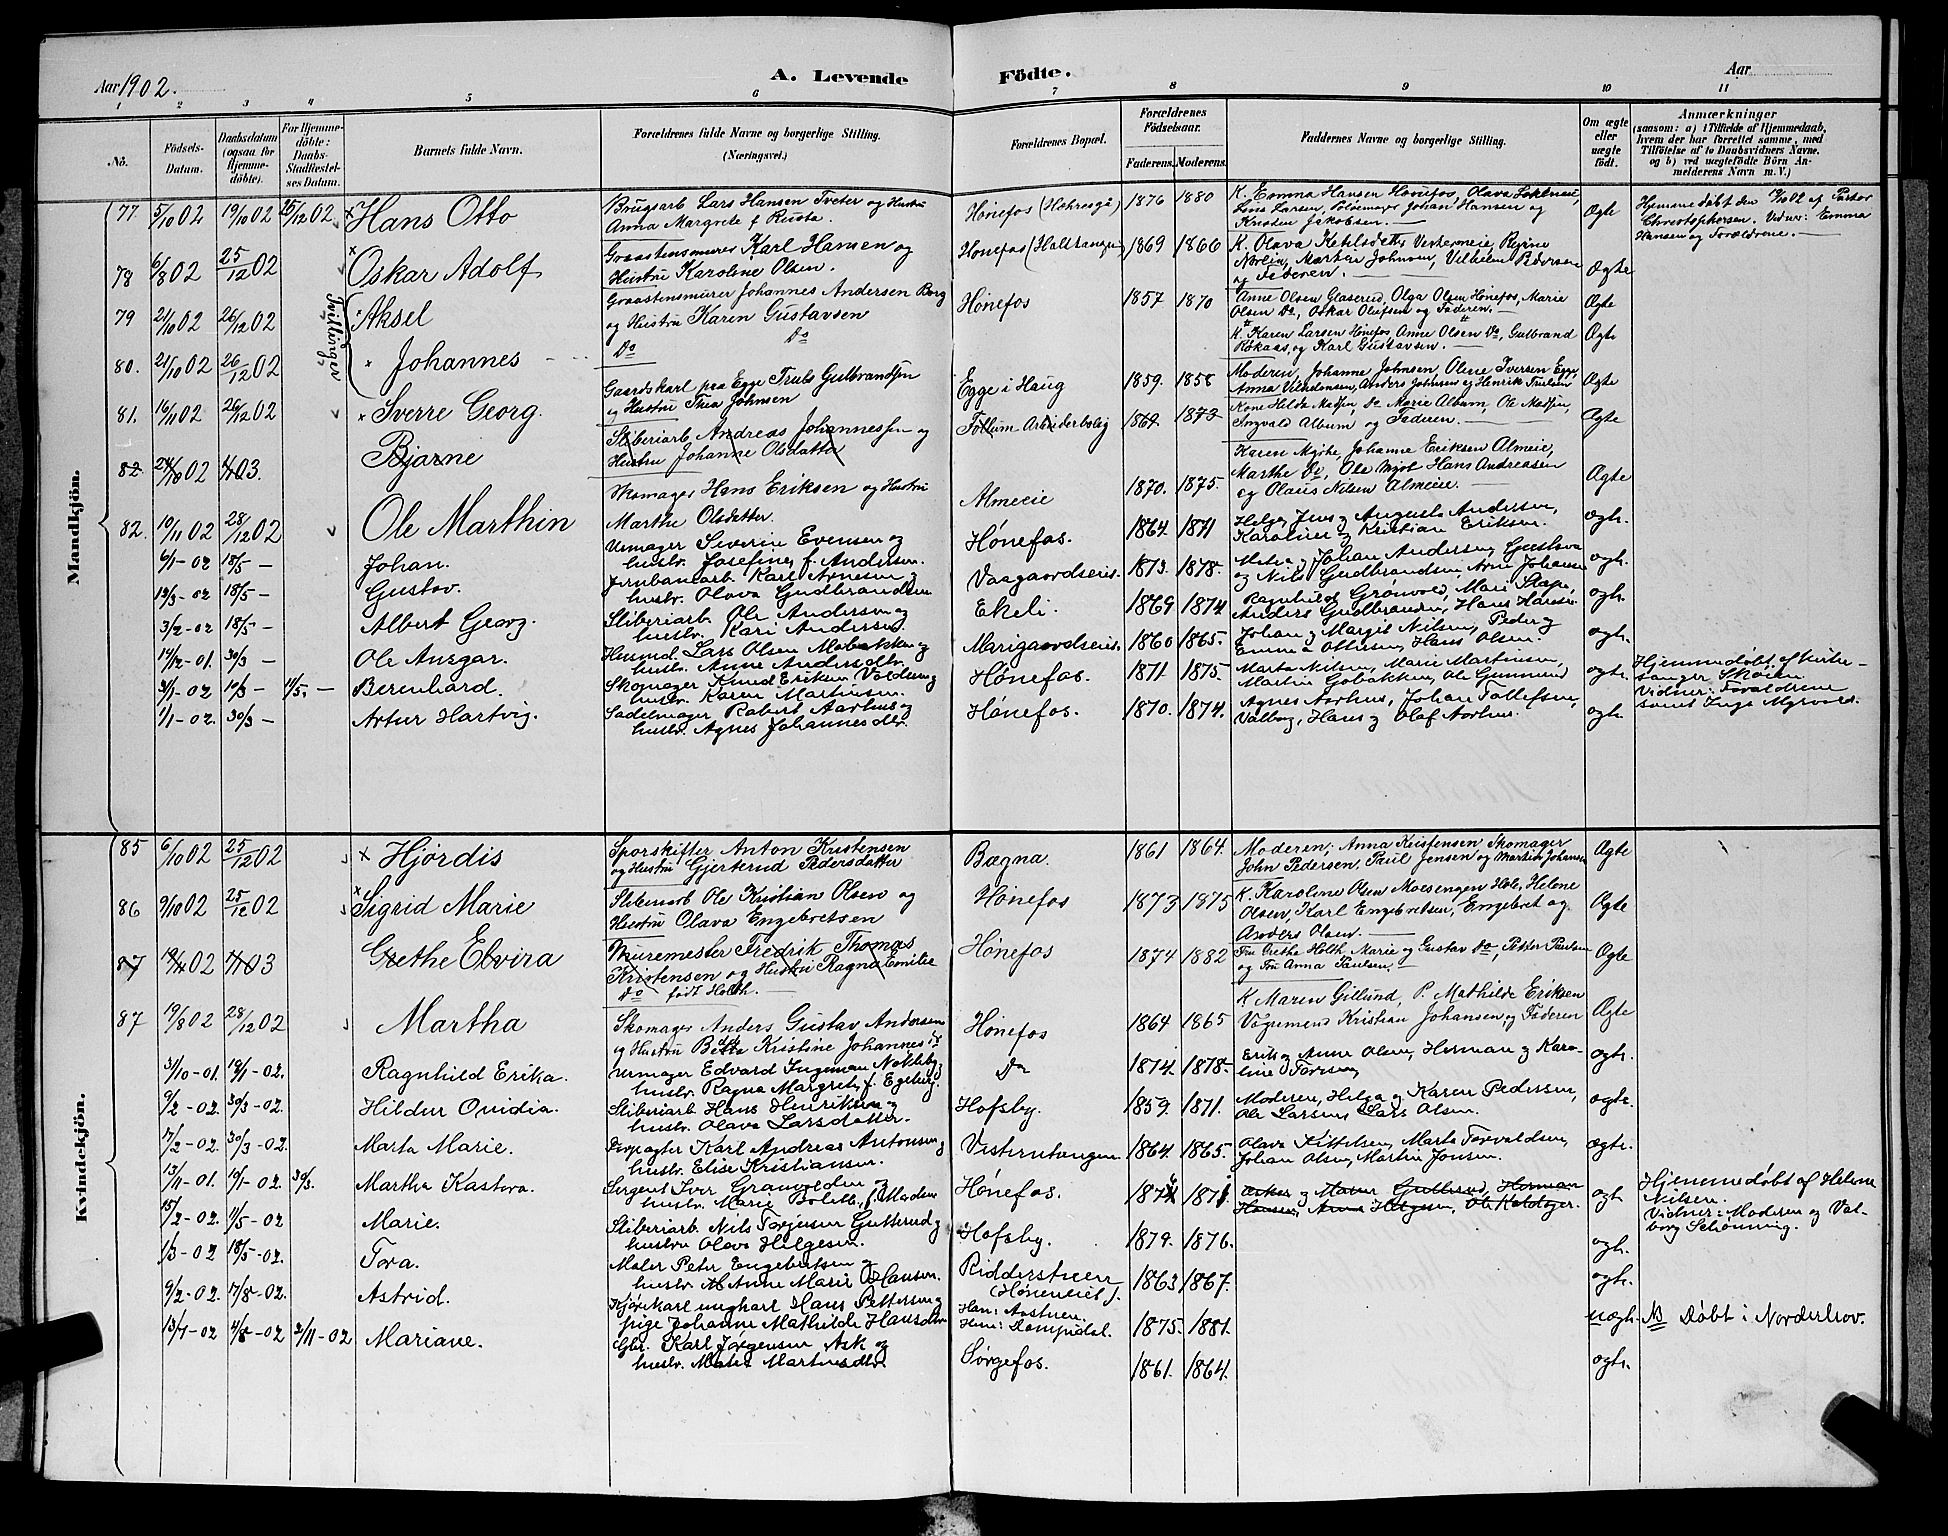 Aar 1902.
A. Levende
Födte.
Aar
1 2 3 4 5 6 7 8 9 10 11
No.
Födsels-Datum.
Daabsdatum (ogsaa for Hjemmedöbte).
For Hjemmedöbte: Daabs-Stadfæstelses Datum.
Barnets fulde Navn.
Forældrenes fulde Navne og borgerlige Stilling. (Næringsvei.)
Forældrenes Bopæl.
Forældrenes Födselsaar.
Faderens. Moderens.
Faddernes Navne og borgerlige Stilling.
Om ægte eller uægte födt.
Anmærkninger
(saasom: a) i Tilfælde af Hjemmedaab, hvem der har forrettet samme, med Tilföielse af to Daabsvidners Navne. og b) ved uægtefödte Börn Anmelderens Navn m. V.)
Mandkjön.
77 5/10 02 19/10 02 25/12 02 Hans Otto Brugsarb Lars Hansen Tveter og Hustru
Anna Margrete f Rusta. Hønefos 1876 1880 K. Emma Hansen Hønefos, Olava
Lina Larsen, Johan Hansen og
Kristen Jakobsen. Ægte Hjemmedøbt den 19/10 02 af Pastor
Christophersen. Vidner: Emma
Hansen og Forældrene.
78 6/8 02 25/12 02 Oskar Adolf Graastensmurer Karl Hansen og
Hustru Karoline Olsen. Hønefos 1869 1866 K. Olava
Norlin, Martin Johnsen, Vilhelm Pedersen
og Faderen. Ægte
Tvillinger
79 21/10 02 26/12 02 Aksel Graastensmurer Johannes Andersen Borg
og Hustru Karen Gustavsen Hønefos 1857 1870 Anne Olsen Glaserud, Olga Olsen Hønefos, Marie
Olsen Do, Oskar Olufsen og Faderen. Ægte
80. 21/10 02 26/12 02 Johannes Do Do K. Karen Larsen Hønefos, Anne Olsen Do, Gulbrand
og Karl Gustavsen. Ægte
81. 16/11 02 26/12 02 Sverre Georg. Gaardskarl paa Egge Truls Gulbrandsen
og Hustru Thea Johnsen Egge i Haug 1859. 1858 Moderen, Johanne Johnsen, Oline Iversen Egge,
Anders Johnsen og Henrik Ægte
82 02 03. Bjarne Sliberiarb Andreas Johannessen og
Hustru Johanne Olsdatter Follum Arbeiderbolig 1873 Kone Hilda Madsen, Do Marie Album, Ole Madsen,
Ingvald Album og Faderen. Ægte
82. 19/11 02 28/12 02 Ole Marthin Skomager Hans Eriksen og Hustru
Marthe Olsdatter. Almeie 1870. 1875. Karen Johanne Eriksen Almeie,
Marthe Do, Ole Hans Andreasen
og Olaus Nilsen Almeie. Ægte
6/1-02 18/5 — Johan. Urmager Severin Evensen og
hustr. Josefine, f. Andersen. Hønefos. 1864. 1871 Helga, Jens og Augusta Andersen,
Karoline og Kristian Eriksen. ægte.
12/3-02 18/5 — Gustav. Jernbanearb. Karl Arnesen og
hustr. Olava Gudbrandsen Vaagaardseie. 1873. 1878. Johan Andersen, Gustava
og Nils Gudbrandsen, Arne Johansen ægte.
3/2-02 18/5 — Albert Georg. Sliberiarb. Ole Andersen og
hustr. Kari Andersen. Ekeli. 1869 1874 Ragnhild Grønvold, Mari Stape,
Anders Gudbrandsen, Hans ægte.
14/12-01. 30/3 — Ole Ansgar. Lars Olsen Mobakken og
hustr. Anne Andersdtr. Marigaardseie. 1860 1865. Johan og Margit Nilsen, Peder og
Emma Ottersen, Hans Olsen. ægte.
31/1-02 19/3 — 11/5. — Bernhard. Skomager Knud Eriksen og
hustr. Karen Martinsen. Hønefos. 1871. 1875. Marta Nilsen, Marie Martinsen,
Martin Ole ægte. Hjemmedøbt af Kirke-
sanger Skøien.
Vidner: Forældrene
samt Inga Myrvold.
1/1-02. 30/3 — Artur Hartvig. Sadelmager Robert Aarhus og
hustr. Agnes Johannesdtr. Hønefos. 1870. 1874. Agnes Aarhus, Johan Tollefsen,
Valborg, Hans og Olaf Aarhus. ægte.
Kvindekjön.
85 6/10 02 25/12 02 Hjørdis Sporskifter Anton Kristensen
og Hustru Gjertrud Pedersdatter Bægna. 1861 1864. Moderen, Anna Kristensen, Skomager
John Pedersen, Paul Jensen og Martin Johansen Ægte
86 9/10 02 25/12 02 Sigrid Marie Ole Kristian Olsen og
Hustru Olava Engebretsen Hønefos 1873 1875 K. Karoline Olsen Moesengen Hole, Helene
Olsen, Karl Engebretsen, Engebret og
Anders Olsen Ægte
87 02 03 Grethe Elvira Muremester Fredrik Thomas
Kristensen og Hustru Ragna Emilie
Do født Holth. Hønefos 1874 1882 Fru Grethe Holth, Marie og Gustav Do, Petter Paulsen
og Fru Anna Paulsen. Ægte
87 19/8 02 28/12 02 Martha Skomager Anders Gustav Andersen
og Hustru Kristine Johannes Hønefos 1864 1865 K Maren Gillund, P. Mathilde Eriksen
Vognmand Kristian Johansen, og Faderen Ægte
31/10-01. 19/1-02. Ragnhild Erika. Urmager Edvard Ingeman Nokleby
hustr. Ragna Margrete, f. Egeberg. Do 1874. 1878. Erik og Anne Olsen, Herman og Karo-
line ægte.
9/2-02. 30/3-02. Hildur Ovidia. Sliberiarb. Hans Henriksen og
hustr. Olava Larsdatter. Hofsby. 1859. 1871. Moderen, Helga og Karen Pedersen,
Ole Larsen, Lars Olsen. ægte.
17/2-02. 30/3-02. Marta Marie. Karl Andreas Antonsen
hustr. Elise Kristiansen. Vesterntangen 1864 1865. Olava Kittelsen, Marta Torvaldsen,
Johan Olsen, Martin Jonsen. ægte.
13/11-01. 19/1-02. 30/3. Martha Kastora. Sergent Iver og
hustr. Marie f. Madsen Hønefos. og Maren Gullerud, Herman
Hansen, Anna Helgesen, Ole ægte. Hjemmedøbt af Helene
Nilsen.
Vidner: Moderen og Val-
borg Schønning.
15/2-02. 11/5-02 Marie. Sliberiarb. Nils Torgersen Gutterud og
hustru Olava Helgesen. Hofsby. 1879. 1876. ægte.
1/3-02 18/5-02. Tora. Maler Peter Engebretsen og
hustr. Anne Marie Hansen. 1863 1867. ægte.
9/2-02. 17/8-02. Astrid. Kjørekarl ungkarl Hans Pettersen og
pige Johanne Mathilde Hansdtr. Han:
Hun: 1875. 1881. uægte. NB Døbt i Norderhov.
13/7-02 4/8-02 2/11-02 Mariane. Karl Jørgensen Ask og
hustr. Martinsdtr. Sørgefos. 1861. 1864. ægte.